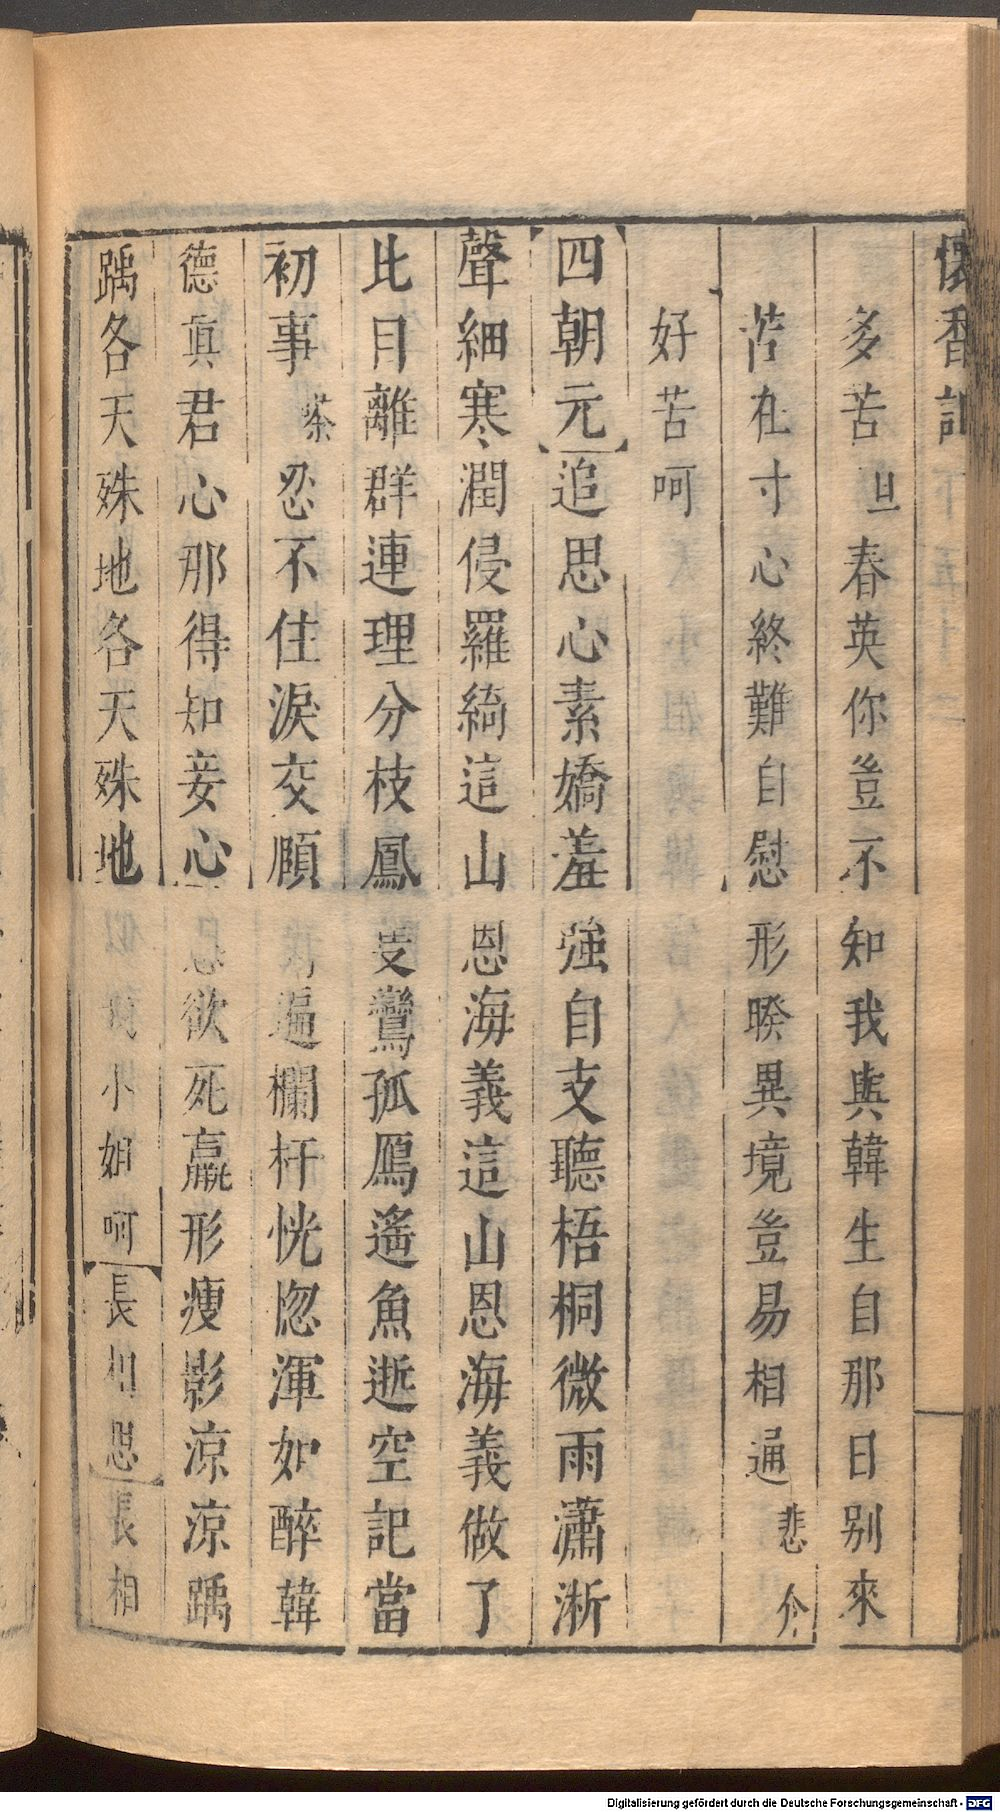 懷香記
多苦旦春英你豈不知我與韓生自那日别來
苦在寸心終難自慰形暌異境豈易相通悲介
好苦呵
四朝元追思心素嬌羞強自支聽梧桐微雨瀟淅
聲細寒潤侵羅綺這山恩海義這山恩海義做了
比目離群連理分枝鳳隻鸞孤鴈遙魚逝空記當
初事嗏忍不住淚交頤遍欄杆恍惚渾如醉韓
德真君心那得知妾心欲死羸形瘦影凉凉踽
踽各天殊地各天殊地小姐呵長相思長相
Digitalisierung gefördert durch die Deutsche Forschungsgemeinschaft - DFG